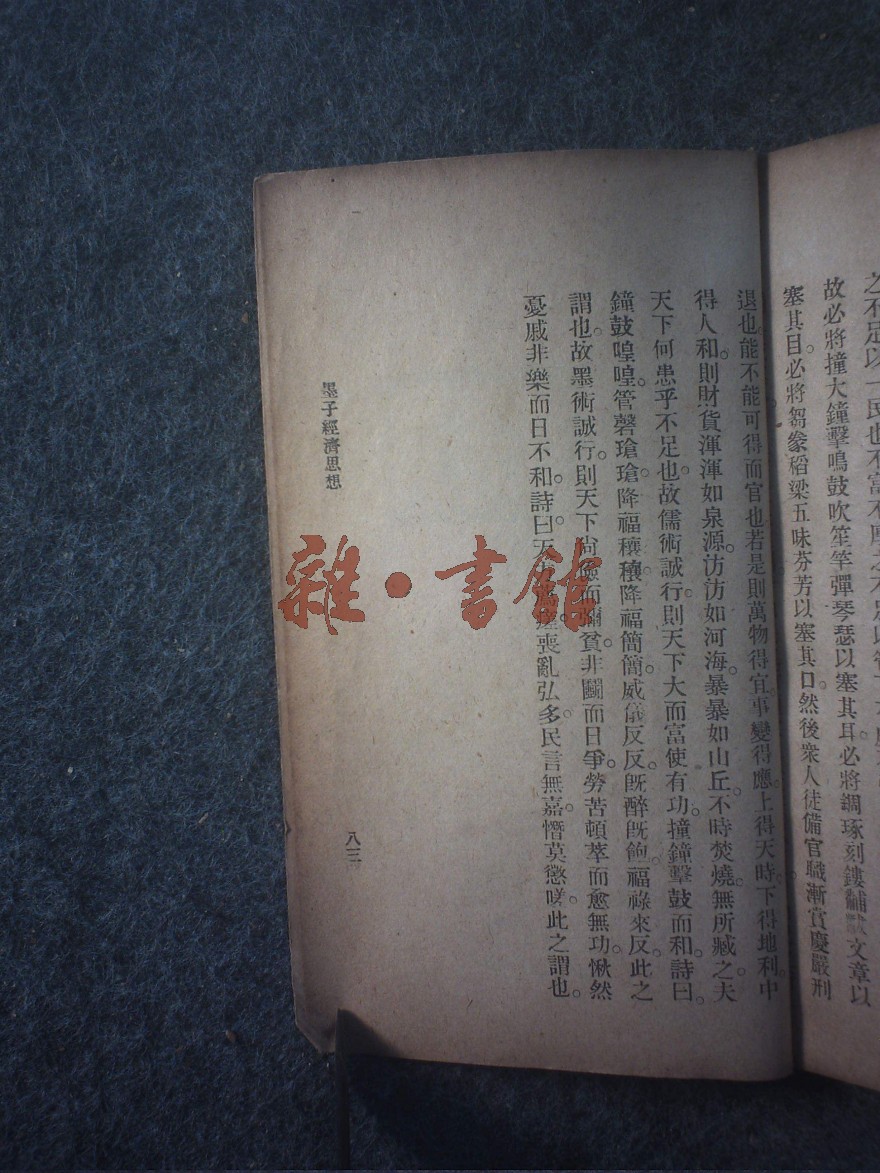 之不足以
民也不
故必將撞大鐘擊鳴鼓吹笙竽彈琴瑟以塞其耳必將錭琢刻鏤黼黻文章以
塞其目必將芻豢稻粱五味芬芳以塞其口然後衆人徒備官職漸賞慶嚴刑
退也能不能可得而官也若是則萬物得宜事變得應上得天時下得地利中
得人和則財貨渾渾如泉源汸汸如河海暴暴如山丘不時焚燒無所臧之夫
天下何患乎不足也故儒術誠行則天下大而富使有功撞鐘擊鼓而和詩曰
鐘鼓喤喤管磬瑲瑲降福穰穰降福簡簡威儀反反旣醉旣飽福祿來反此之
謂也故墨術誠行則天下尙儉而彌貧非鬭而日爭勞苦頓萃而愈無功愀然
憂戚非樂而日不和詩曰天 喪亂弘多民言無嘉憯莫懲嗟此之謂也
墨子經濟思想
八三
雜·書館